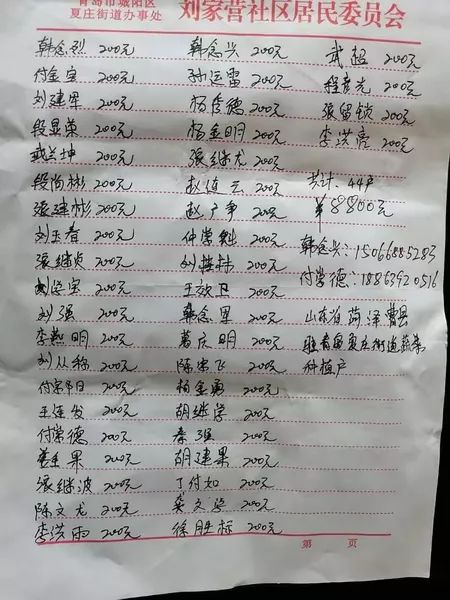 青岛市城阳区
夏庄街道办事处 刘家营社区居民委员会
韩念烈 200元 韩念兴 200元 武超 200元
付金宝 200元 孙运雷 200元 程彦光 200元
刘建军 200元 杨传德 200元 张留锁 200元
段显荣 200元 杨金明 200元 李洪亮 200元
武兰坤 200元 张继龙 200元
段尚彬 200元 赵连云 200元 共计:44户
张建彬 200元 赵广争 200元 ¥8800元
刘玉春 200元 仲崇 200元 韩念兴:15066885283
张继贞 200元 刘 200元 付常德:18863920516
刘 200元 王效卫 200元 山东省菏泽曹县
刘强 200元 韩念军 200元 驻青岛夏庄街道蔬菜
李 明 200元 葛庆明 200元 种植户
刘从称 200元 陈宗飞 200元
付 200元 杨金勇 200元
王连发 200元 胡继学 200元
付常德 200元 秦强 200元
果 200元 胡建果 200元
张继波 200元 丁付如 200元
陈文龙 200元 文 200元
李洪雨 200元 徐胜标 200元
第 页